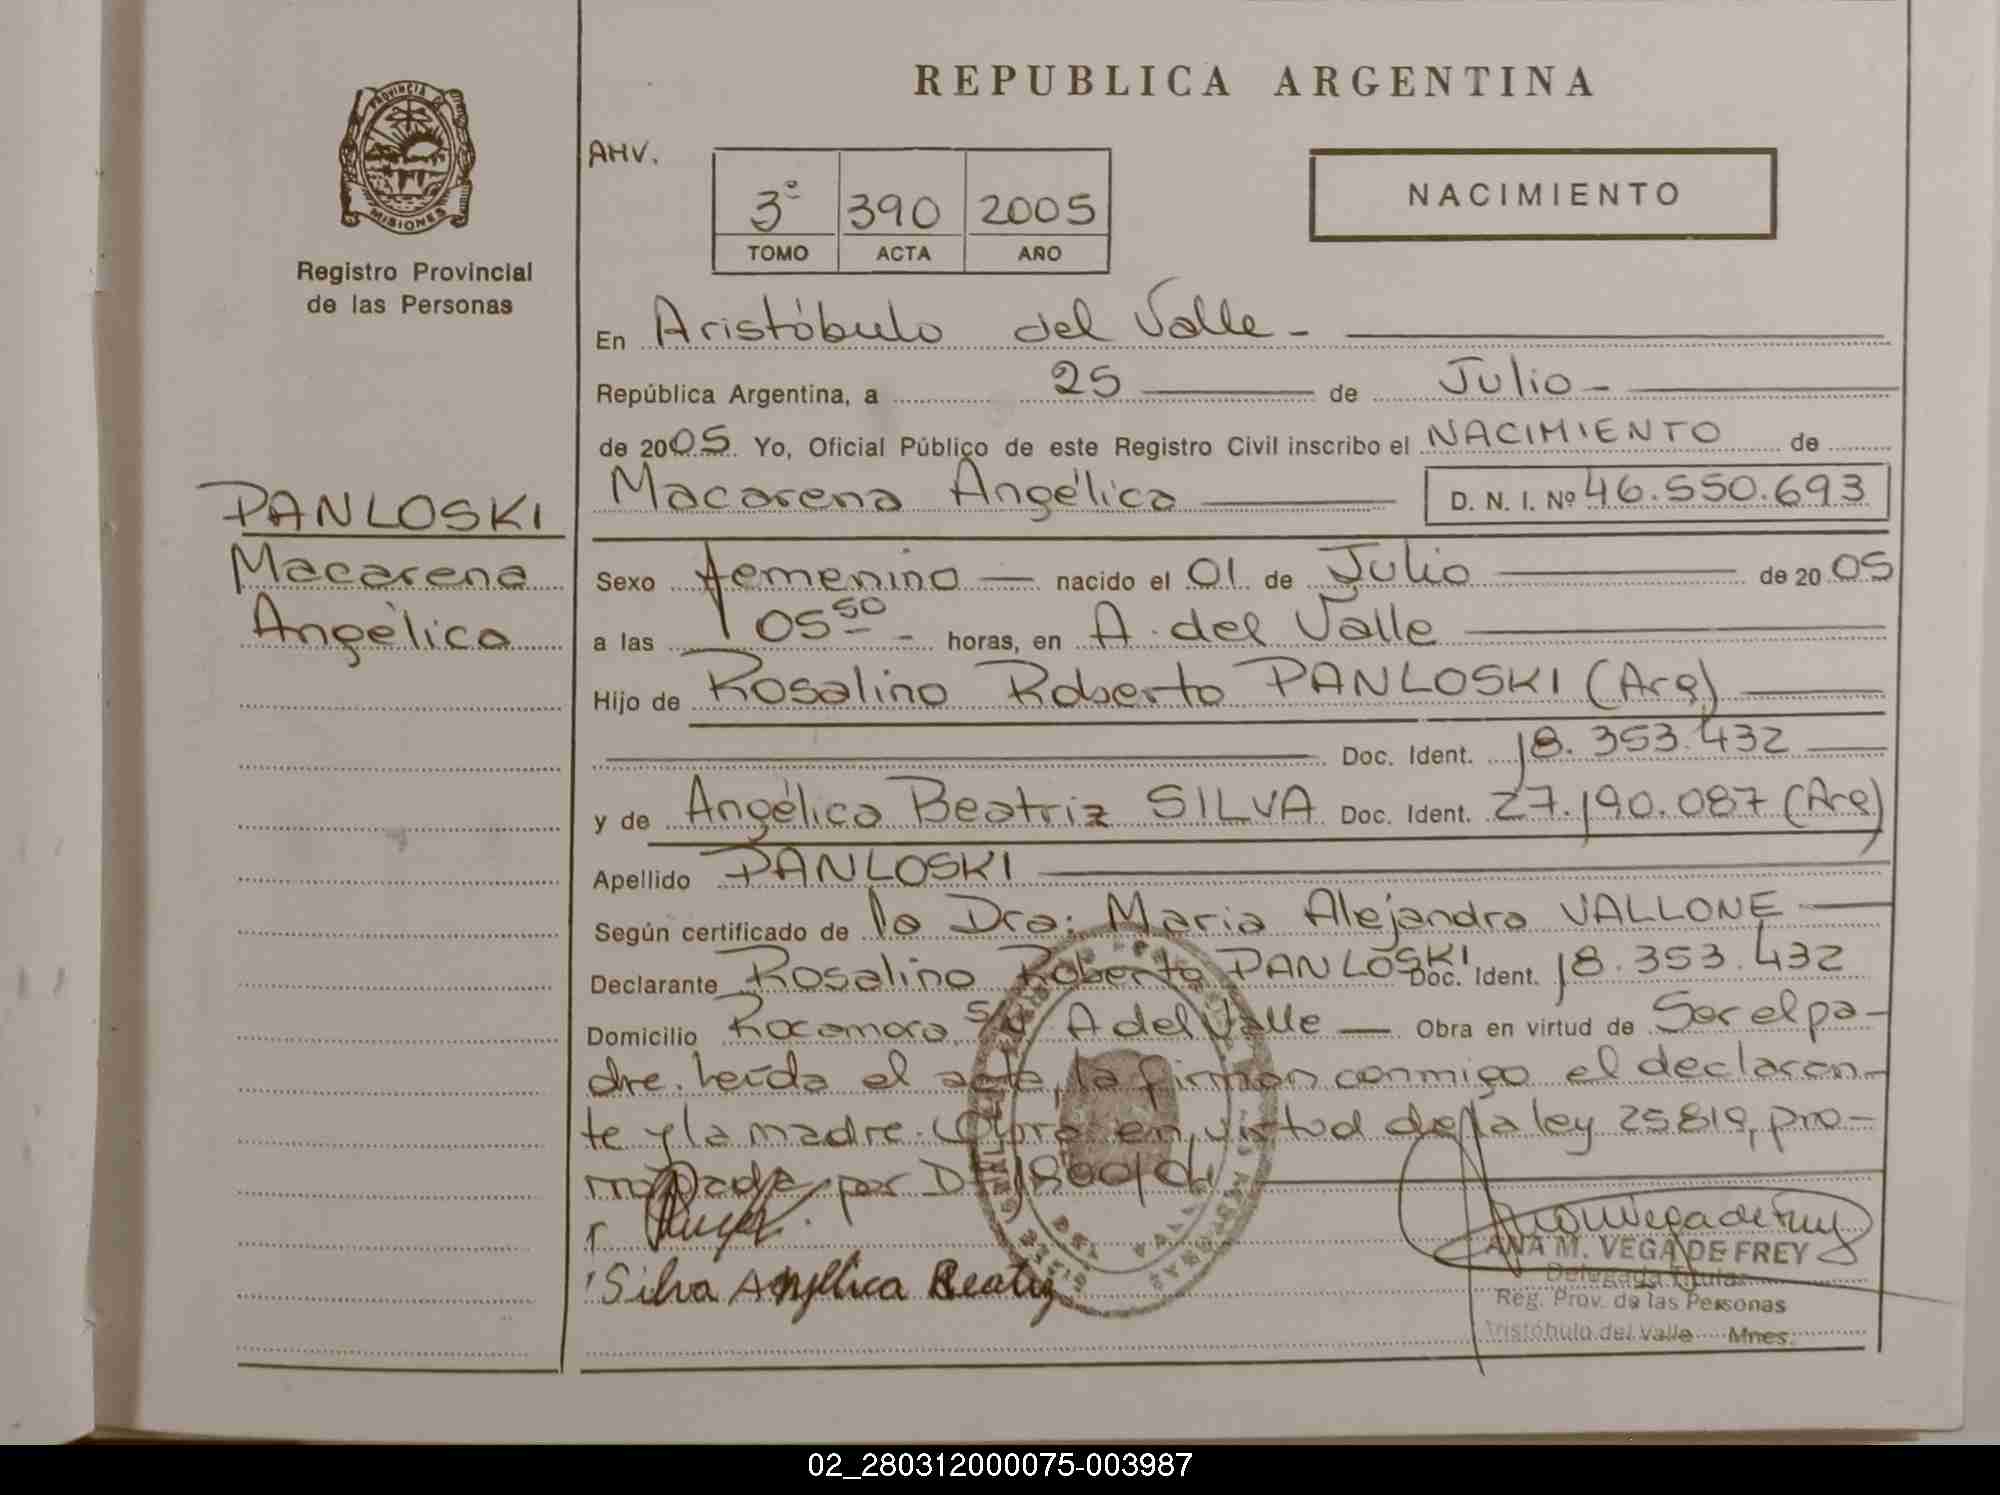 REPUBLICA ARGENTINA
PROVINCIA DE
MISIONES
Registro Provincial
de las Personas
AHV.
3º 390 2005
TOMO ACTA AÑO
NACIMIENTO
En Aristóbulo del Valle -
República Argentina, a 25 de Julio -
de 2005. Yo, Oficial Público de este Registro Civil inscribo el NACIMIENTO de
PANLOSKI
Macarena
Angélica
Macarena Angélica D. N. I. Nº 46.550.693
Sexo femenino nacido el 01 de Julio de 2005
a las 05 50 - horas, en A. del Valle
Hijo de Rosalino Roberto PANLOSKI (Arg)
Doc. Ident. 18.353.432
y de Angélica Beatriz SILVA Doc. Ident. 27.190.087 (Arg)
Apellido PANLOSKI
Según certificado de la Dra: Maria Alejandra VALLONE
Declarante Rosalino Roberto PANLOSKI Doc. Ident. 18.353.432
Domicilio Rocamora S/N A del Valle Obra en virtud de Ser el pa-
dre. Leída el acta, la firman conmigo el declaran-
te y la madre. Obra en virtud de la ley 25819, pro-
por
Silva Angélica Beatriz
ANA M. VEGA DE FREY
Delegada Titular
Reg. Prov. de las Personas
Aristóbulo del Valle Mnes.
02_280312000075-003987